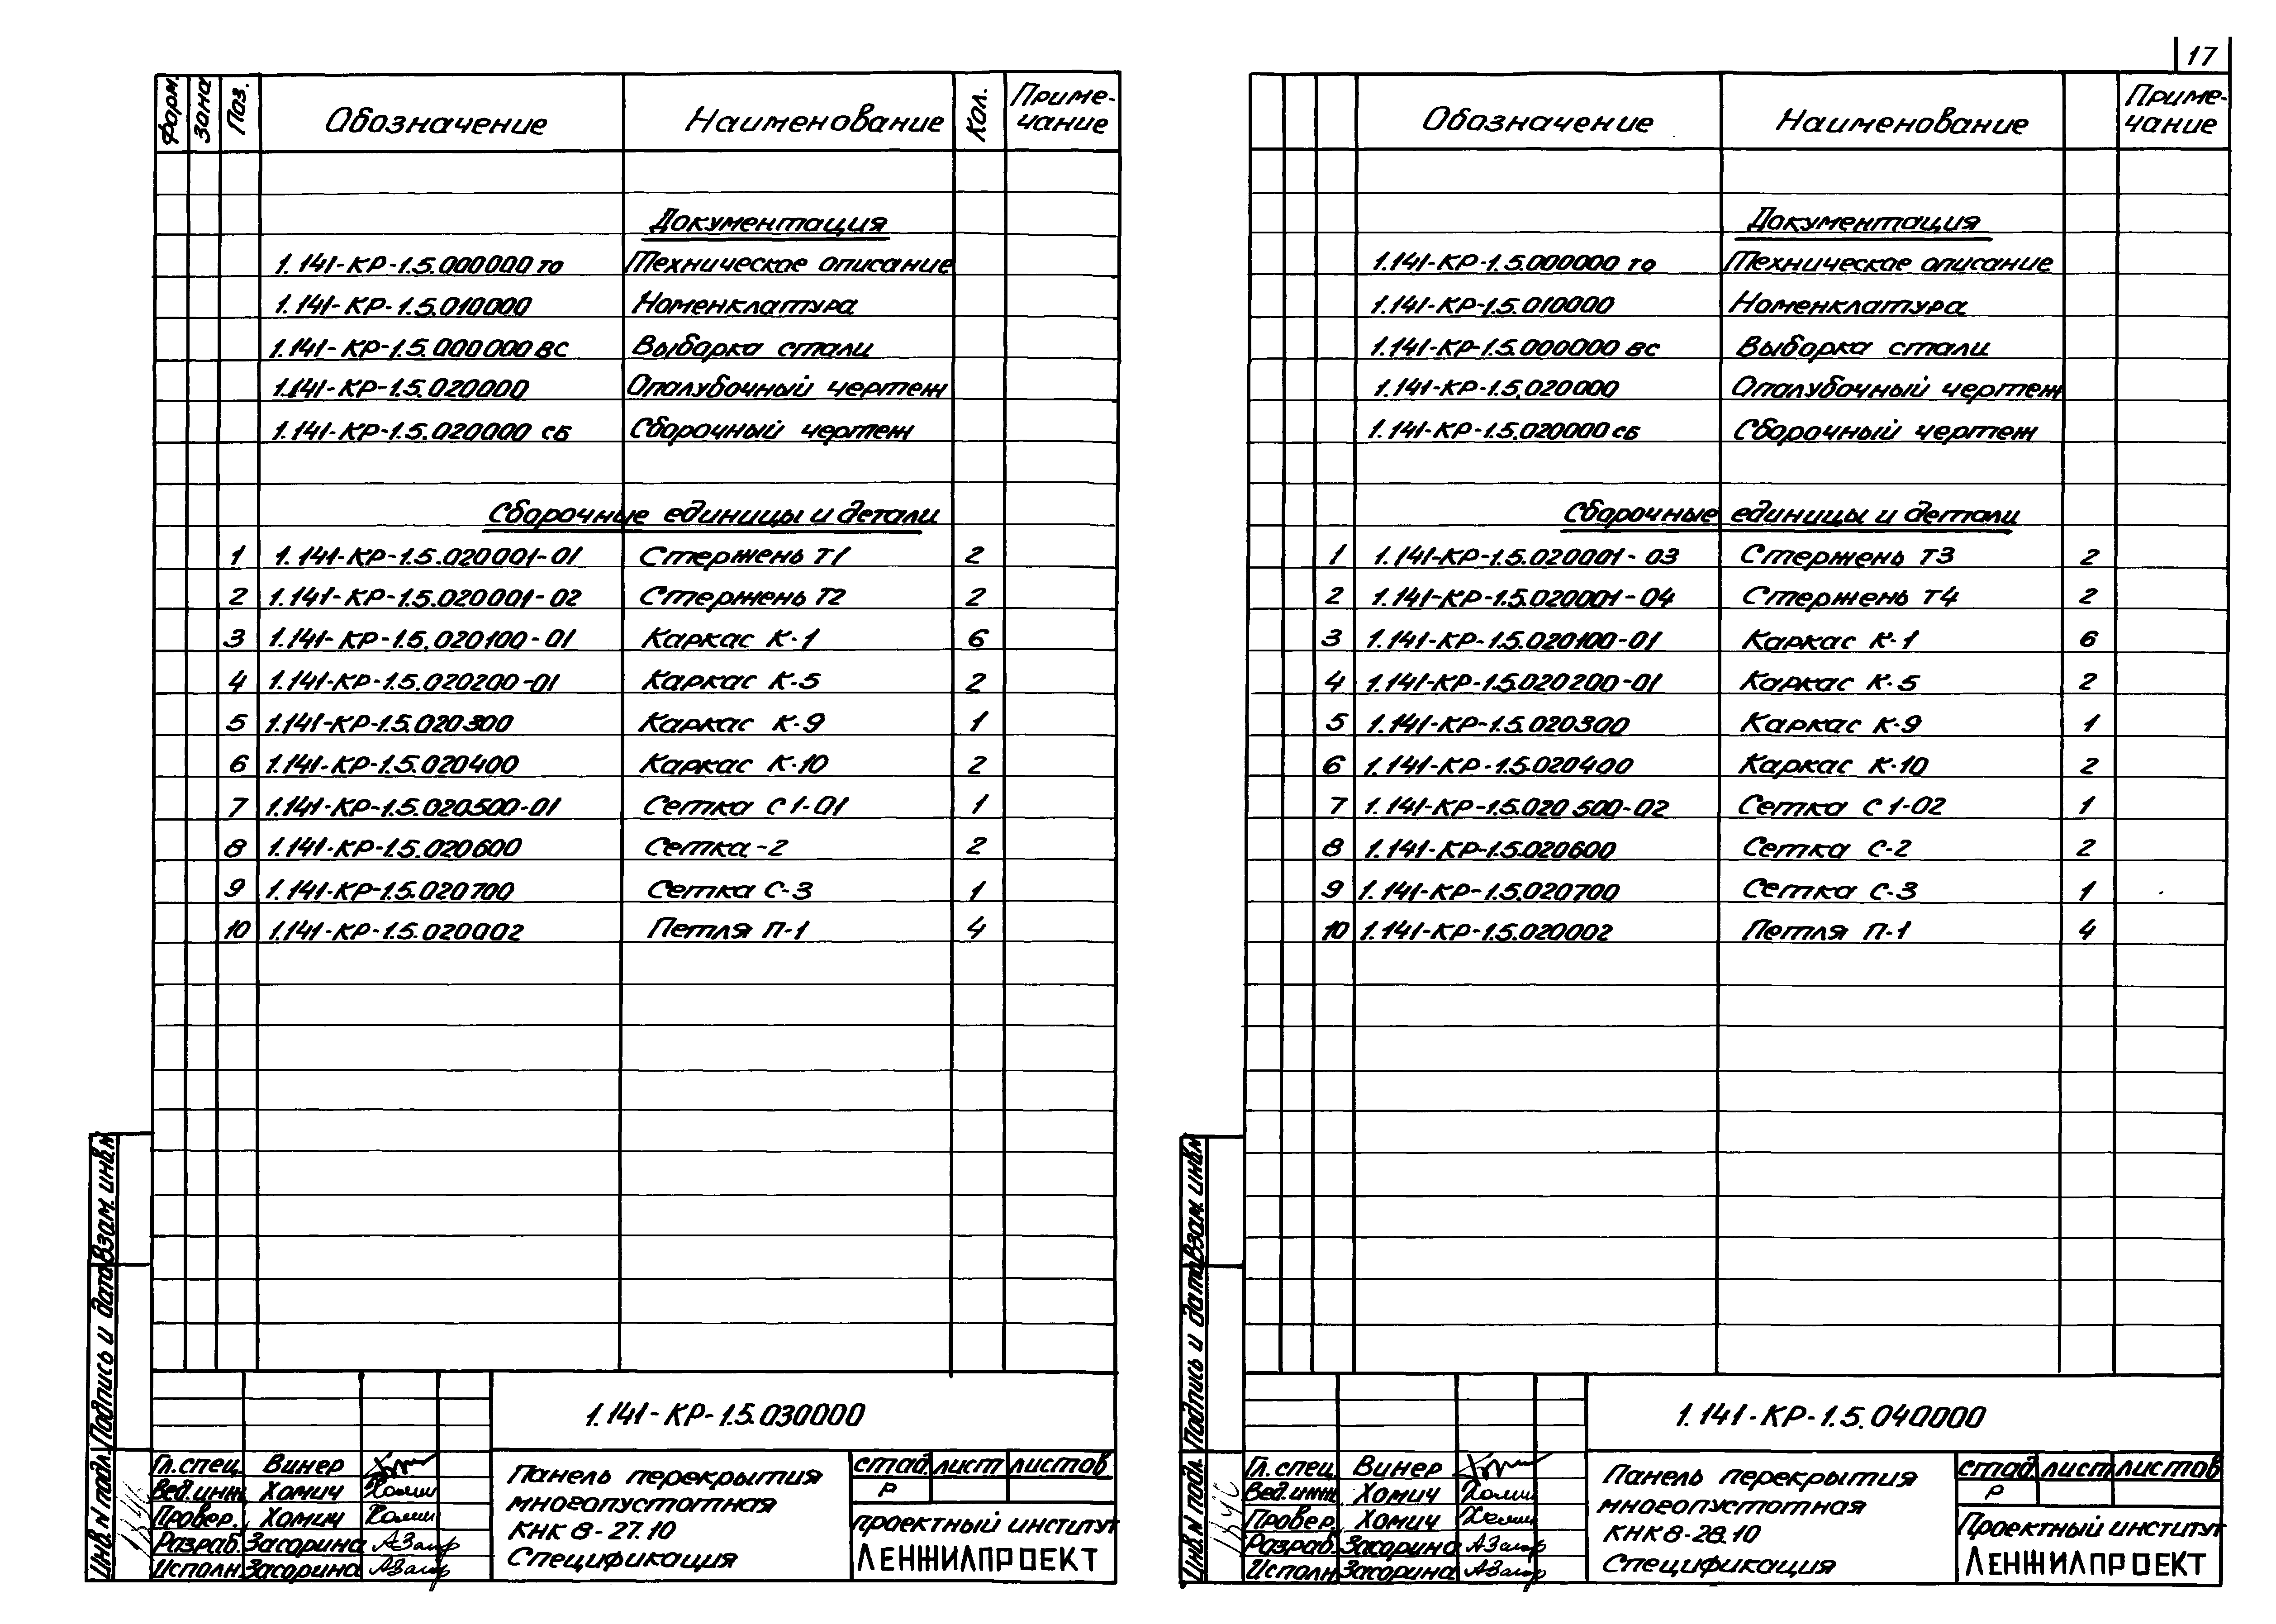 17
Форм. Зона Поз. Обозначение Наименование Кол. Приме-
чание
Документация
1.141-КР-1.5.000000 то Техническое описание
1.141-КР-1.5.010000 Номенклатура
1.141-КР-1.5.000000 ВС Выборка стали
1.141-КР-1.5.020000 Опалубочный чертеж
1.141-КР-1.5.020000 СБ Сборочный чертеж
Сборочные единицы и детали
1 1.141-КР-1.5.020001-01 Стержень Т1 2
2 1.141-КР-1.5.020001-02 Стержень Т2 2
3 1.141-КР-1.5.020100-01 Каркас К-1 6
4 1.141-КР-1.5.020200-01 Каркас К-5 2
5 1.141-КР-1.5.020300 Каркас К-9 1
6 1.141-КР-1.5.020400 Каркас К-10 2
7 1.141-КР-1.5.020500-01 Сетка С1-01 1
8 1.141-КР-1.5.020600 Сетка-2 2
9 1.141-КР-1.5.020700 Сетка С-3 1
10 1.141-КР-1.5.020002 Петля П-1 4
Взам. инв. N
Подпись и дата
Инв. N подл.
1.141-КР-1.5.030000
Гл. спец. Винер
Вед. инж. Хомич
Провер. Хомич
Разраб. Засорина
Исполн. Засорина
Панель перекрытия
многопустотная
КНК 8-27.10
Спецификация
стад. лист листов
Р
проектный институт
ЛЕНЖИЛПРОЕКТ
Обозначение Наименование Приме-
чание
Документация
1.141-КР-1.5.000000 то Техническое описание
1.141-КР-1.5.010000 Номенклатура
1.141-КР-1.5.000000 ВС Выборка стали
1.141-КР-1.5.020000 Опалубочный чертеж
1.141-КР-1.5.020000 СБ Сборочный чертеж
Сборочные единицы и детали
1 1.141-КР-1.5.020001-03 Стержень Т3 2
2 1.141-КР-1.5.020001-04 Стержень Т4 2
3 1.141-КР-1.5.020100-01 Каркас К-1 6
4 1.141-КР-1.5.020200-01 Каркас К-5 2
5 1.141-КР-1.5.020300 Каркас К-9 1
6 1.141-КР-1.5.020400 Каркас К-10 2
7 1.141-КР-1.5.020500-02 Сетка С1-02 1
8 1.141-КР-1.5.020600 Сетка С-2 2
9 1.141-КР-1.5.020700 Сетка С-3 1
10 1.141-КР-1.5.020002 Петля П-1 4
Взам. инв. N
Подпись и дата
Инв. N подл.
1.141-КР-1.5.040000
Гл. спец. Винер
Вед. инж. Хомич
Провер. Хомич
Разраб. Засорина
Исполн. Засорина
Панель перекрытия
многопустотная
КНК 8-28.10
Спецификация
стад. лист листов
Р
Проектный институт
ЛЕНЖИЛПРОЕКТ